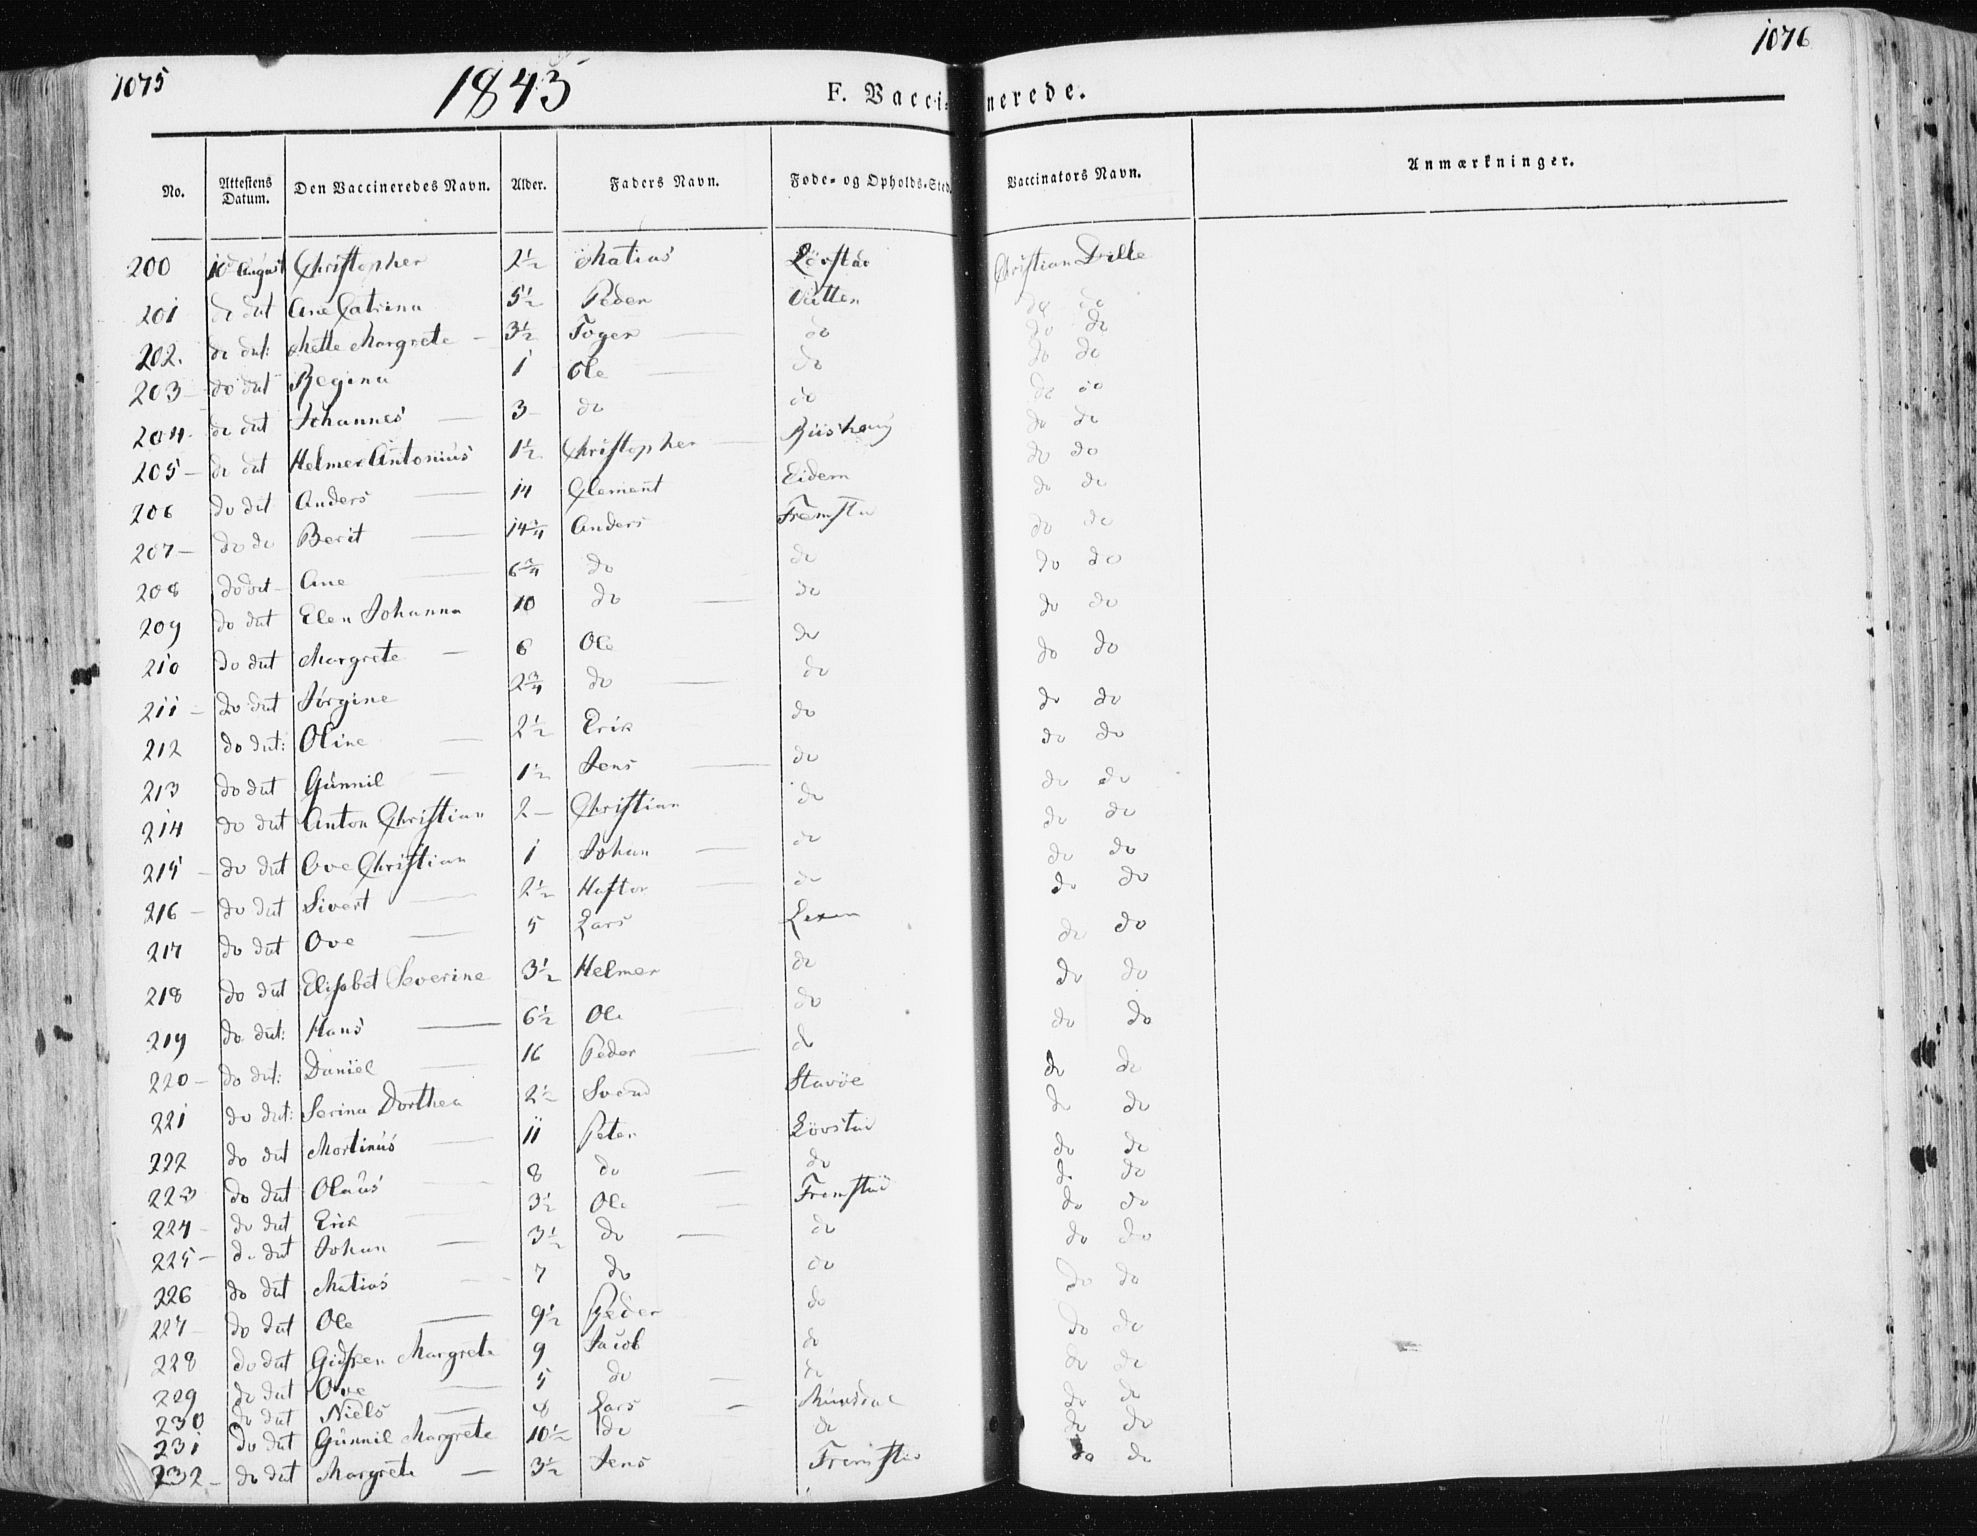 1075 1843 F. Vaccinerede. 1076
No. Attestens Datum. Den Vaccineredes Navn. Alder. Faders Navn. Føde- og Opholds-Sted. Vaccinators Navn. Anmærkninger.
200 10 August Christopher 2½ Matias Christian Dille
201 do dat Ane Catrina 5½ Peder do do
202. do dat: Mette Margrete - 3½ Toger do do do
203 - do dat Regina 1 Ole do do do
204 - do dat Johannes 3 - do do do do
205 - do dat Helmer Antonius 1½ Christopher do do
206 do dat Anders 14 Clement Eidem do do
207 - do do Berit 14¾ Anders Fremstad do do
208 do dat - Ane 6¾ do do do do
209 do dat Elen Johanna 10 do do do do
210 do dat Margrete - 6 Ole do do do
211 - do dat Jørgine 2¾ do do do do
212 do dat: Oline 2½ Erik do do do
213 do dat Gunnil 1½ Jens do do do
214 do dat Anton Christian 2 - Christian do do do
215 - do dat Ove Christian 1 Johan do do do
216 - do dat Sivert 2½ Haftor do do do
217 do dat Ove 5 Lars do do
218 do dat Elisabet Severine 3½ Helmer do do do
219 do dat: Hans 6½ Ole do do do
220 - do dat: Daniel 16 Peder do do do
221 do dat: Serina Dorthea 2½ Svend Stavöe do do
222 do dat Mortinus 11 Peter Lövstad do do
223 do dat Olaus 8 do do do do
224 - do dat Erik 3½ Ole Fremstad do do
225 - do dat Johan 3½ do do do do
226 do dat Matias 7 do do do do
227 - do dat Ole 9½ Peder do do do
228 do dat Margrete 9 Jacob do do do
229 do dat Ove 5 do do do do
230 do dat Niels 8 Lars do do
231 do dat Gunnil Margrete 10½ do do do do
232 - do dat Margrete - 3½ Jens Fremstad do do